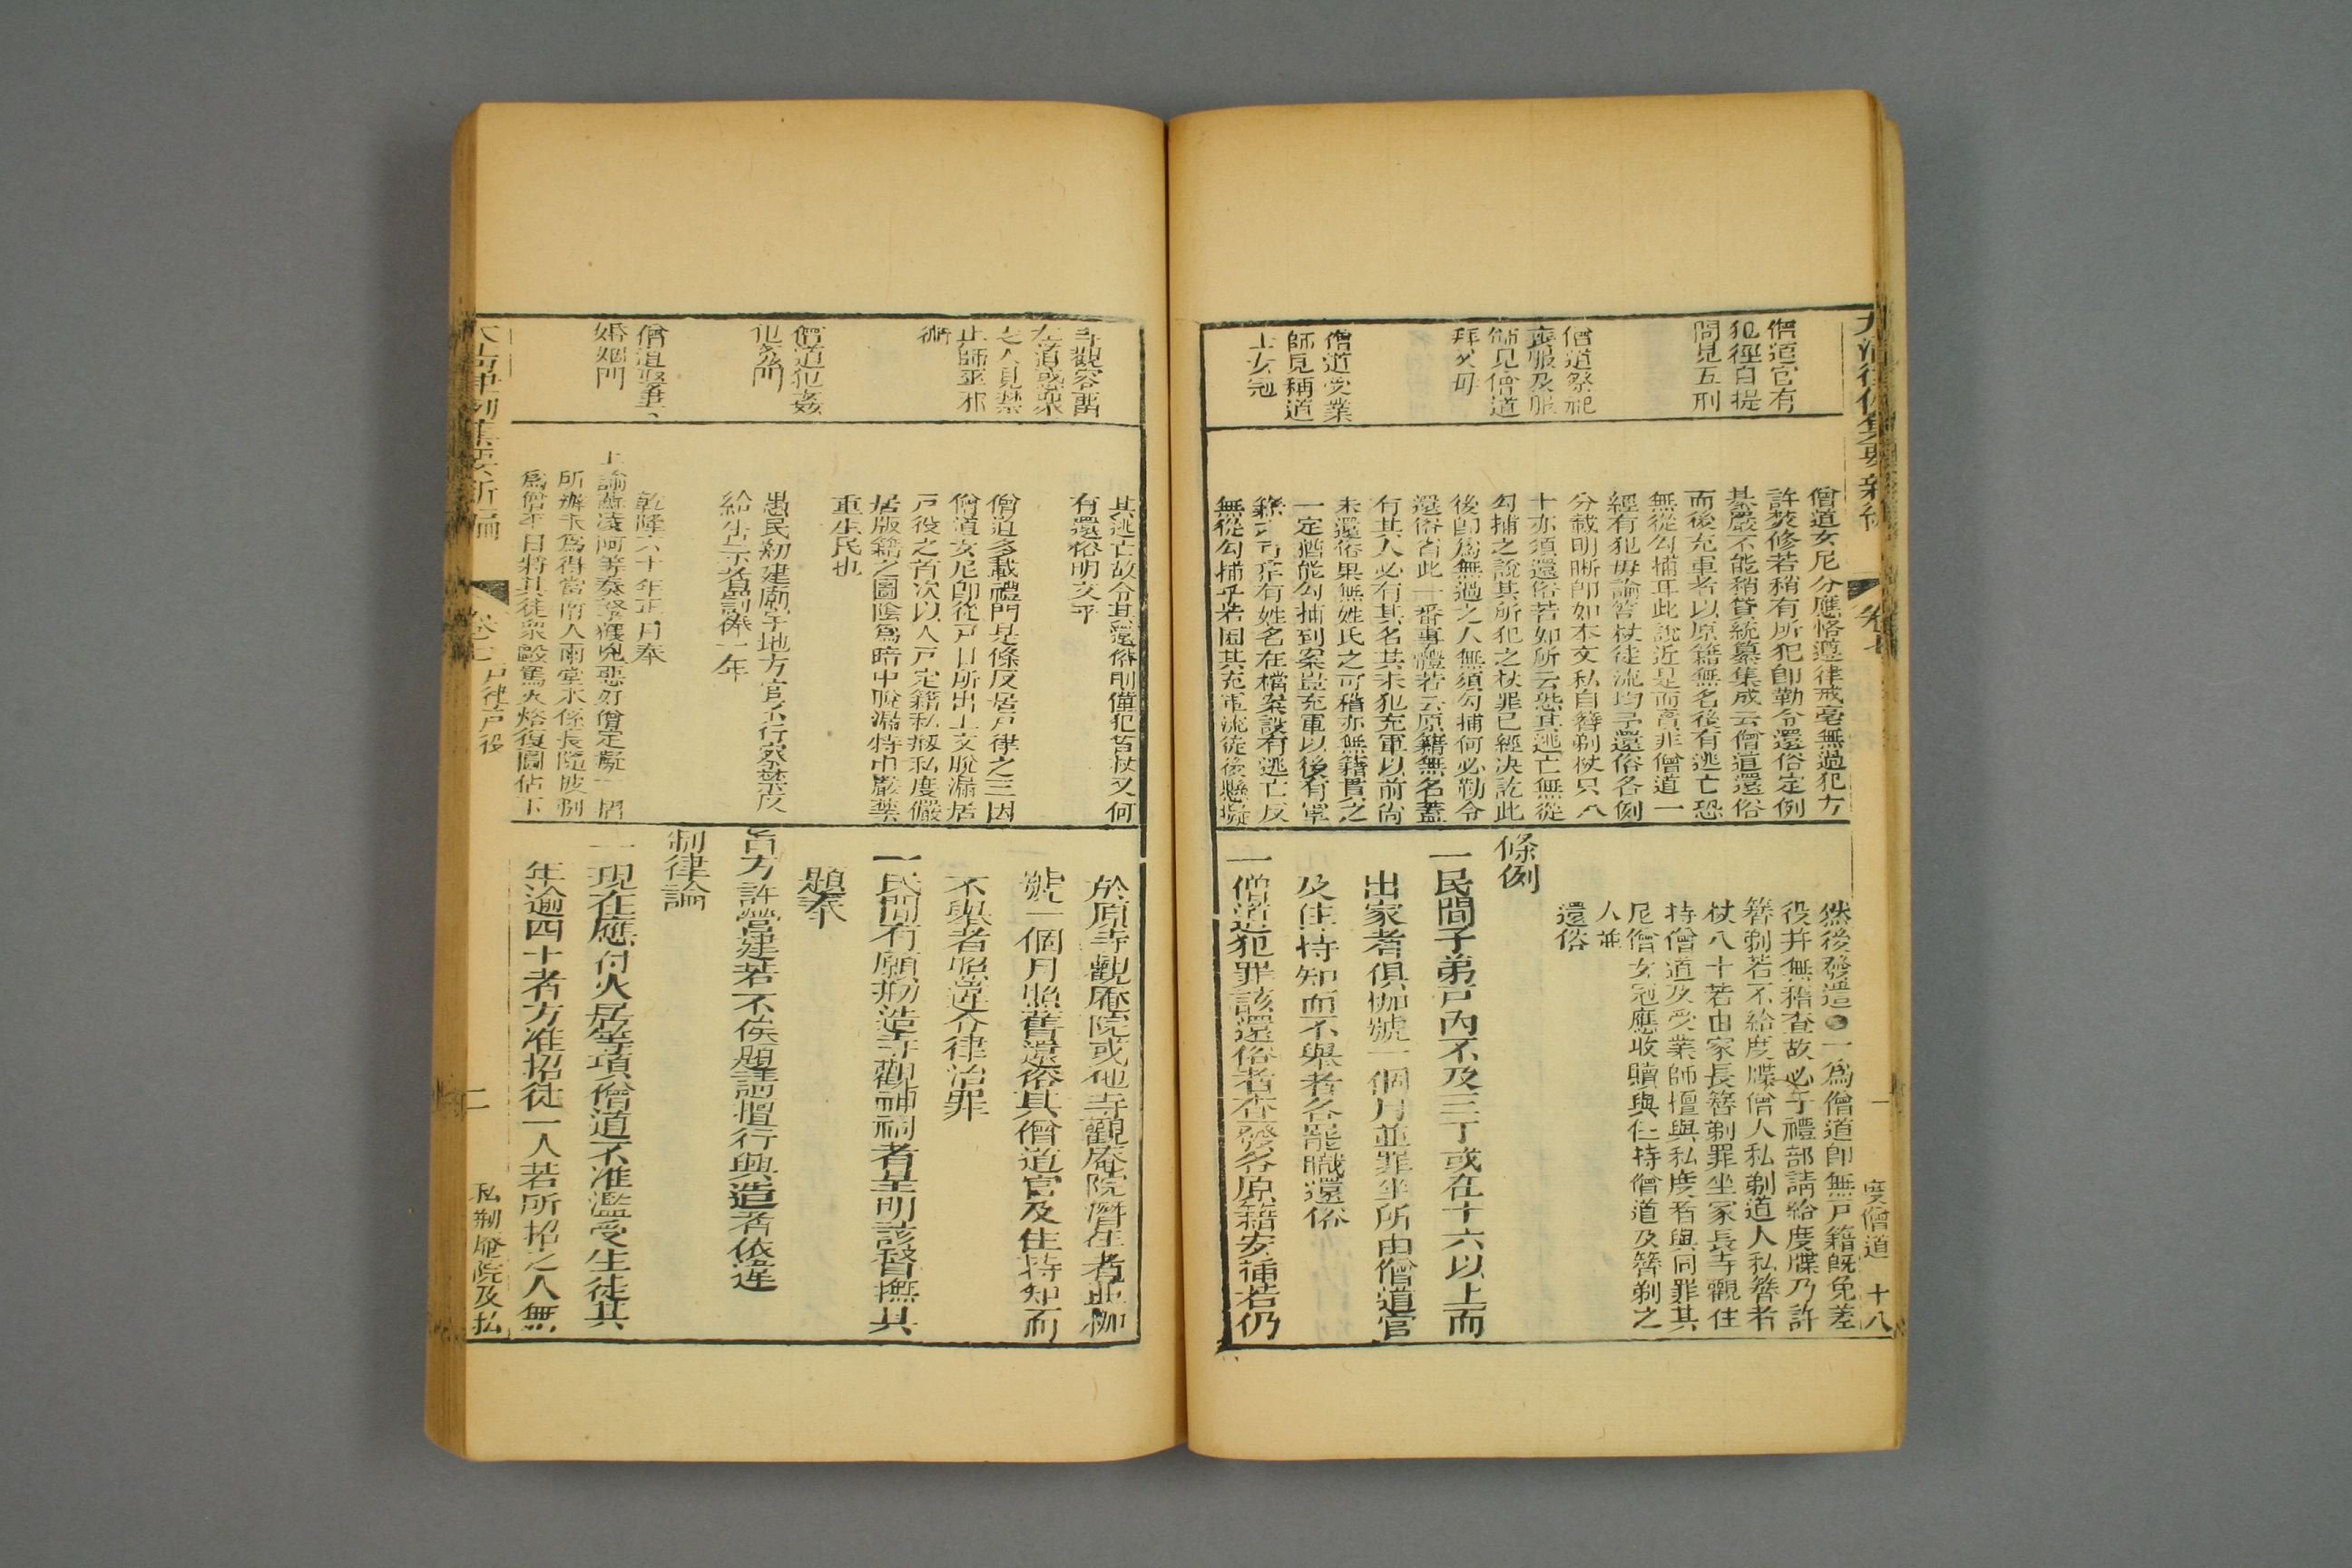 卷七
度僧道 十八
僧道官有
犯徑自提
問見五刑
僧道祭祀
喪服及服
飾見僧道
拜父母
僧道受業
師見稱道
士女冠
僧道女尼分應恪遵律戒毫無過犯方
許焚修若稍有所犯即勒令還俗定例
綦嚴不能稍貸統纂集成云僧道還俗
而後充軍者以原籍無名後有逃亡恐
無從勾捕耳此說近是而實非僧道一
經有犯毋論笞杖徒流均予還俗各例
分載明晰即如本文私自簪剃杖只八
十亦須還俗若如所云恐其逃亡無從
勾捕之說其所犯之杖罪已經決訖此
後即為無過之人無須勾捕何必勒令
還俗省此一番事體若云原籍無名蓋
有其人必有其名其未犯充軍以前尚
未還俗果無姓氏之可稽亦無籍貫之
一定猶能勾捕到案豈充軍以後有軍
籍之可稽有姓名在檔案設有逃亡反
無從勾捕乎若因其充軍流徒後懸擬
然後發遣●一為僧道即無戶籍既免差
役并無稽查故必于禮部請給度牒乃許
簪剃若不給度牒僧人私剃道人私簪者
杖八十若由家長簪剃罪坐家長寺觀住
持僧道及受業師擅與私度者與同罪其
尼僧女冠應收贖與住持僧道及簪剃之
人並
還俗
條例
一民間子弟戶內不及三丁或在十六以上而
出家者俱枷號一個月並罪坐所由僧道官
及住持知而不舉者各罷職還俗
一僧道犯罪該還俗者查發各原籍安插若仍
寺觀容留
左道惑眾
之人見禁
止師巫邪
術
僧道犯姦
犯姦門
僧道娶妻
婚姻門
其逃亡故令其還俗則僅犯笞杖又何
有還俗明文乎
僧道多載禮門是條反居戶律之三因
僧道女尼即從戶口所出上文脫漏居
戶役之首次以人戶定籍私捏私度儼
居版籍之圖陰為暗中脫漏特申嚴禁
重生民也
愚民剏建廟宇地方官不行察禁反
給告示者罰俸一年
乾隆六十年正月奉
為僧不日將其徒眾毆篤火烙復圖佔下
於原寺觀庵院或他寺觀庵院潛住者並枷
號一個月照舊還俗其僧道官及住持知而
不舉者照違令律治罪
一民間有願剏造寺觀神祠者呈明該督撫具
題奉
旨方許營建若不俟題請擅行興造者依違
制律論
一現在應付火居等項僧道不准濫受生徒其
年逾四十者方准招徒一人若所招之人無
卷七 戶律戶役
二
私剏庵院及私